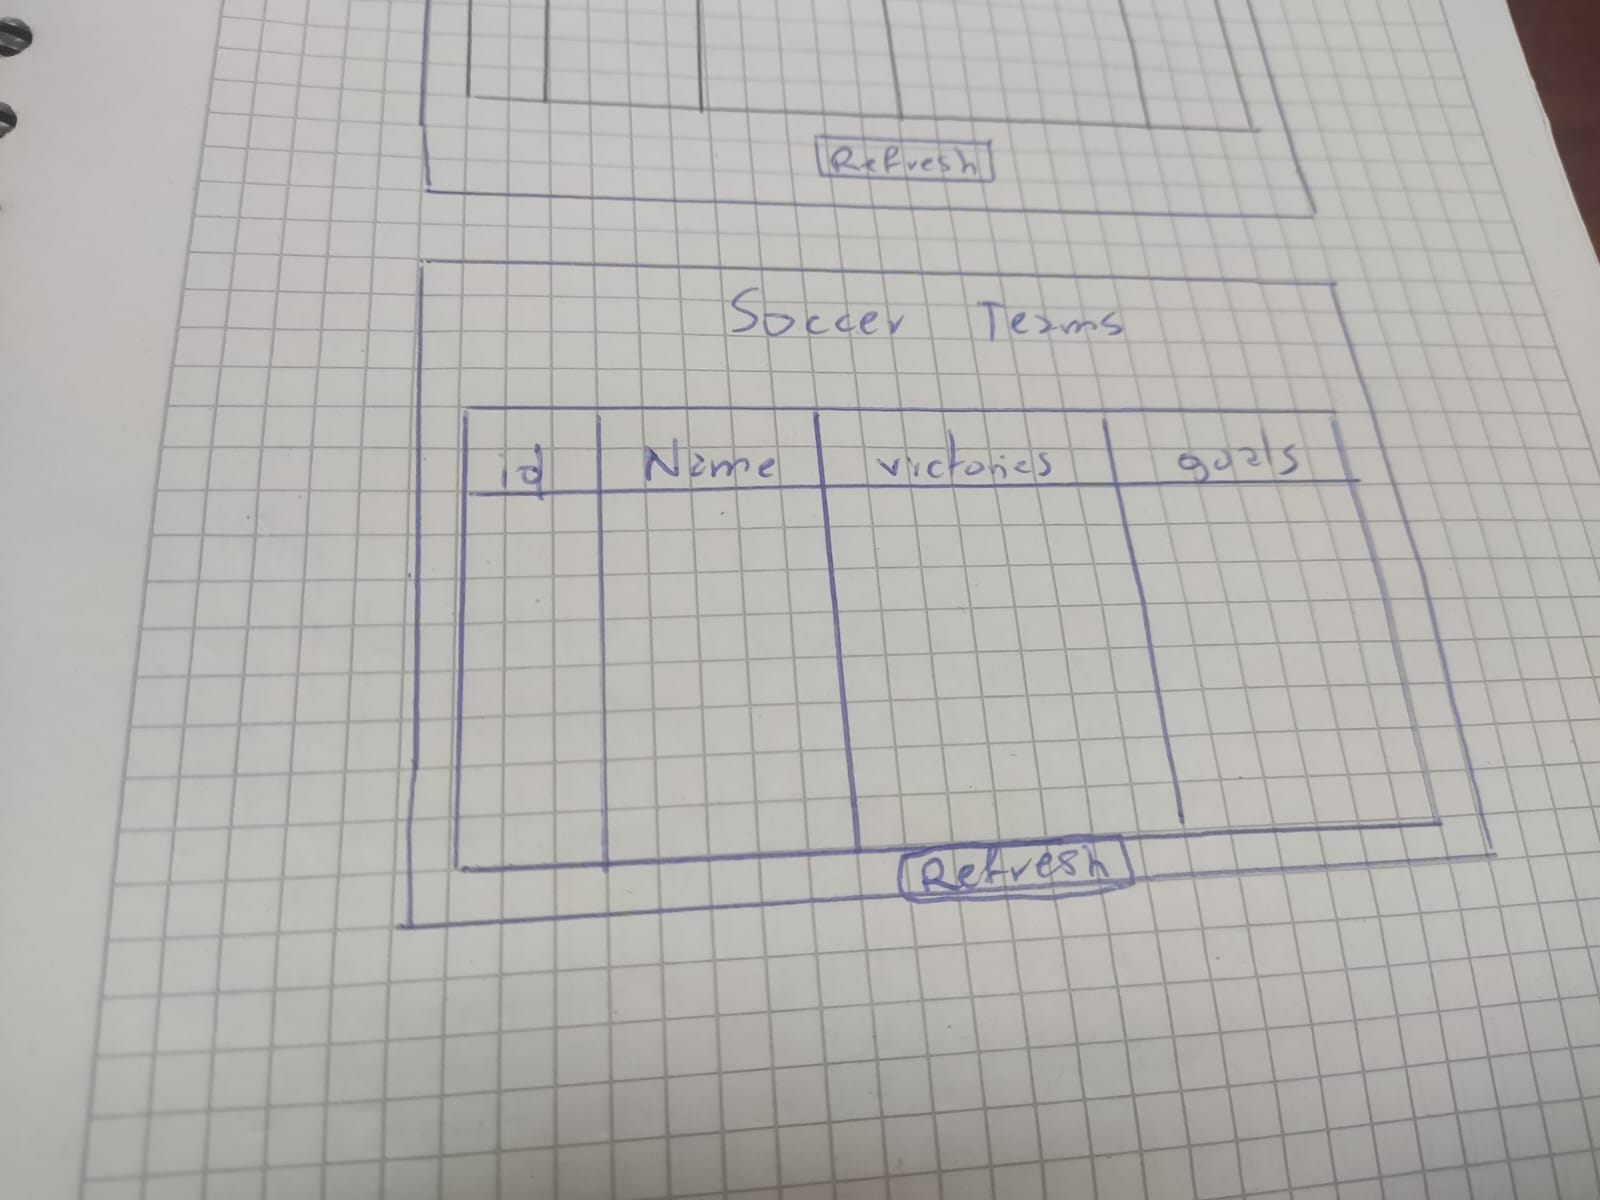 Refresh
Soccer Teams
id Name victories goals
Refresh